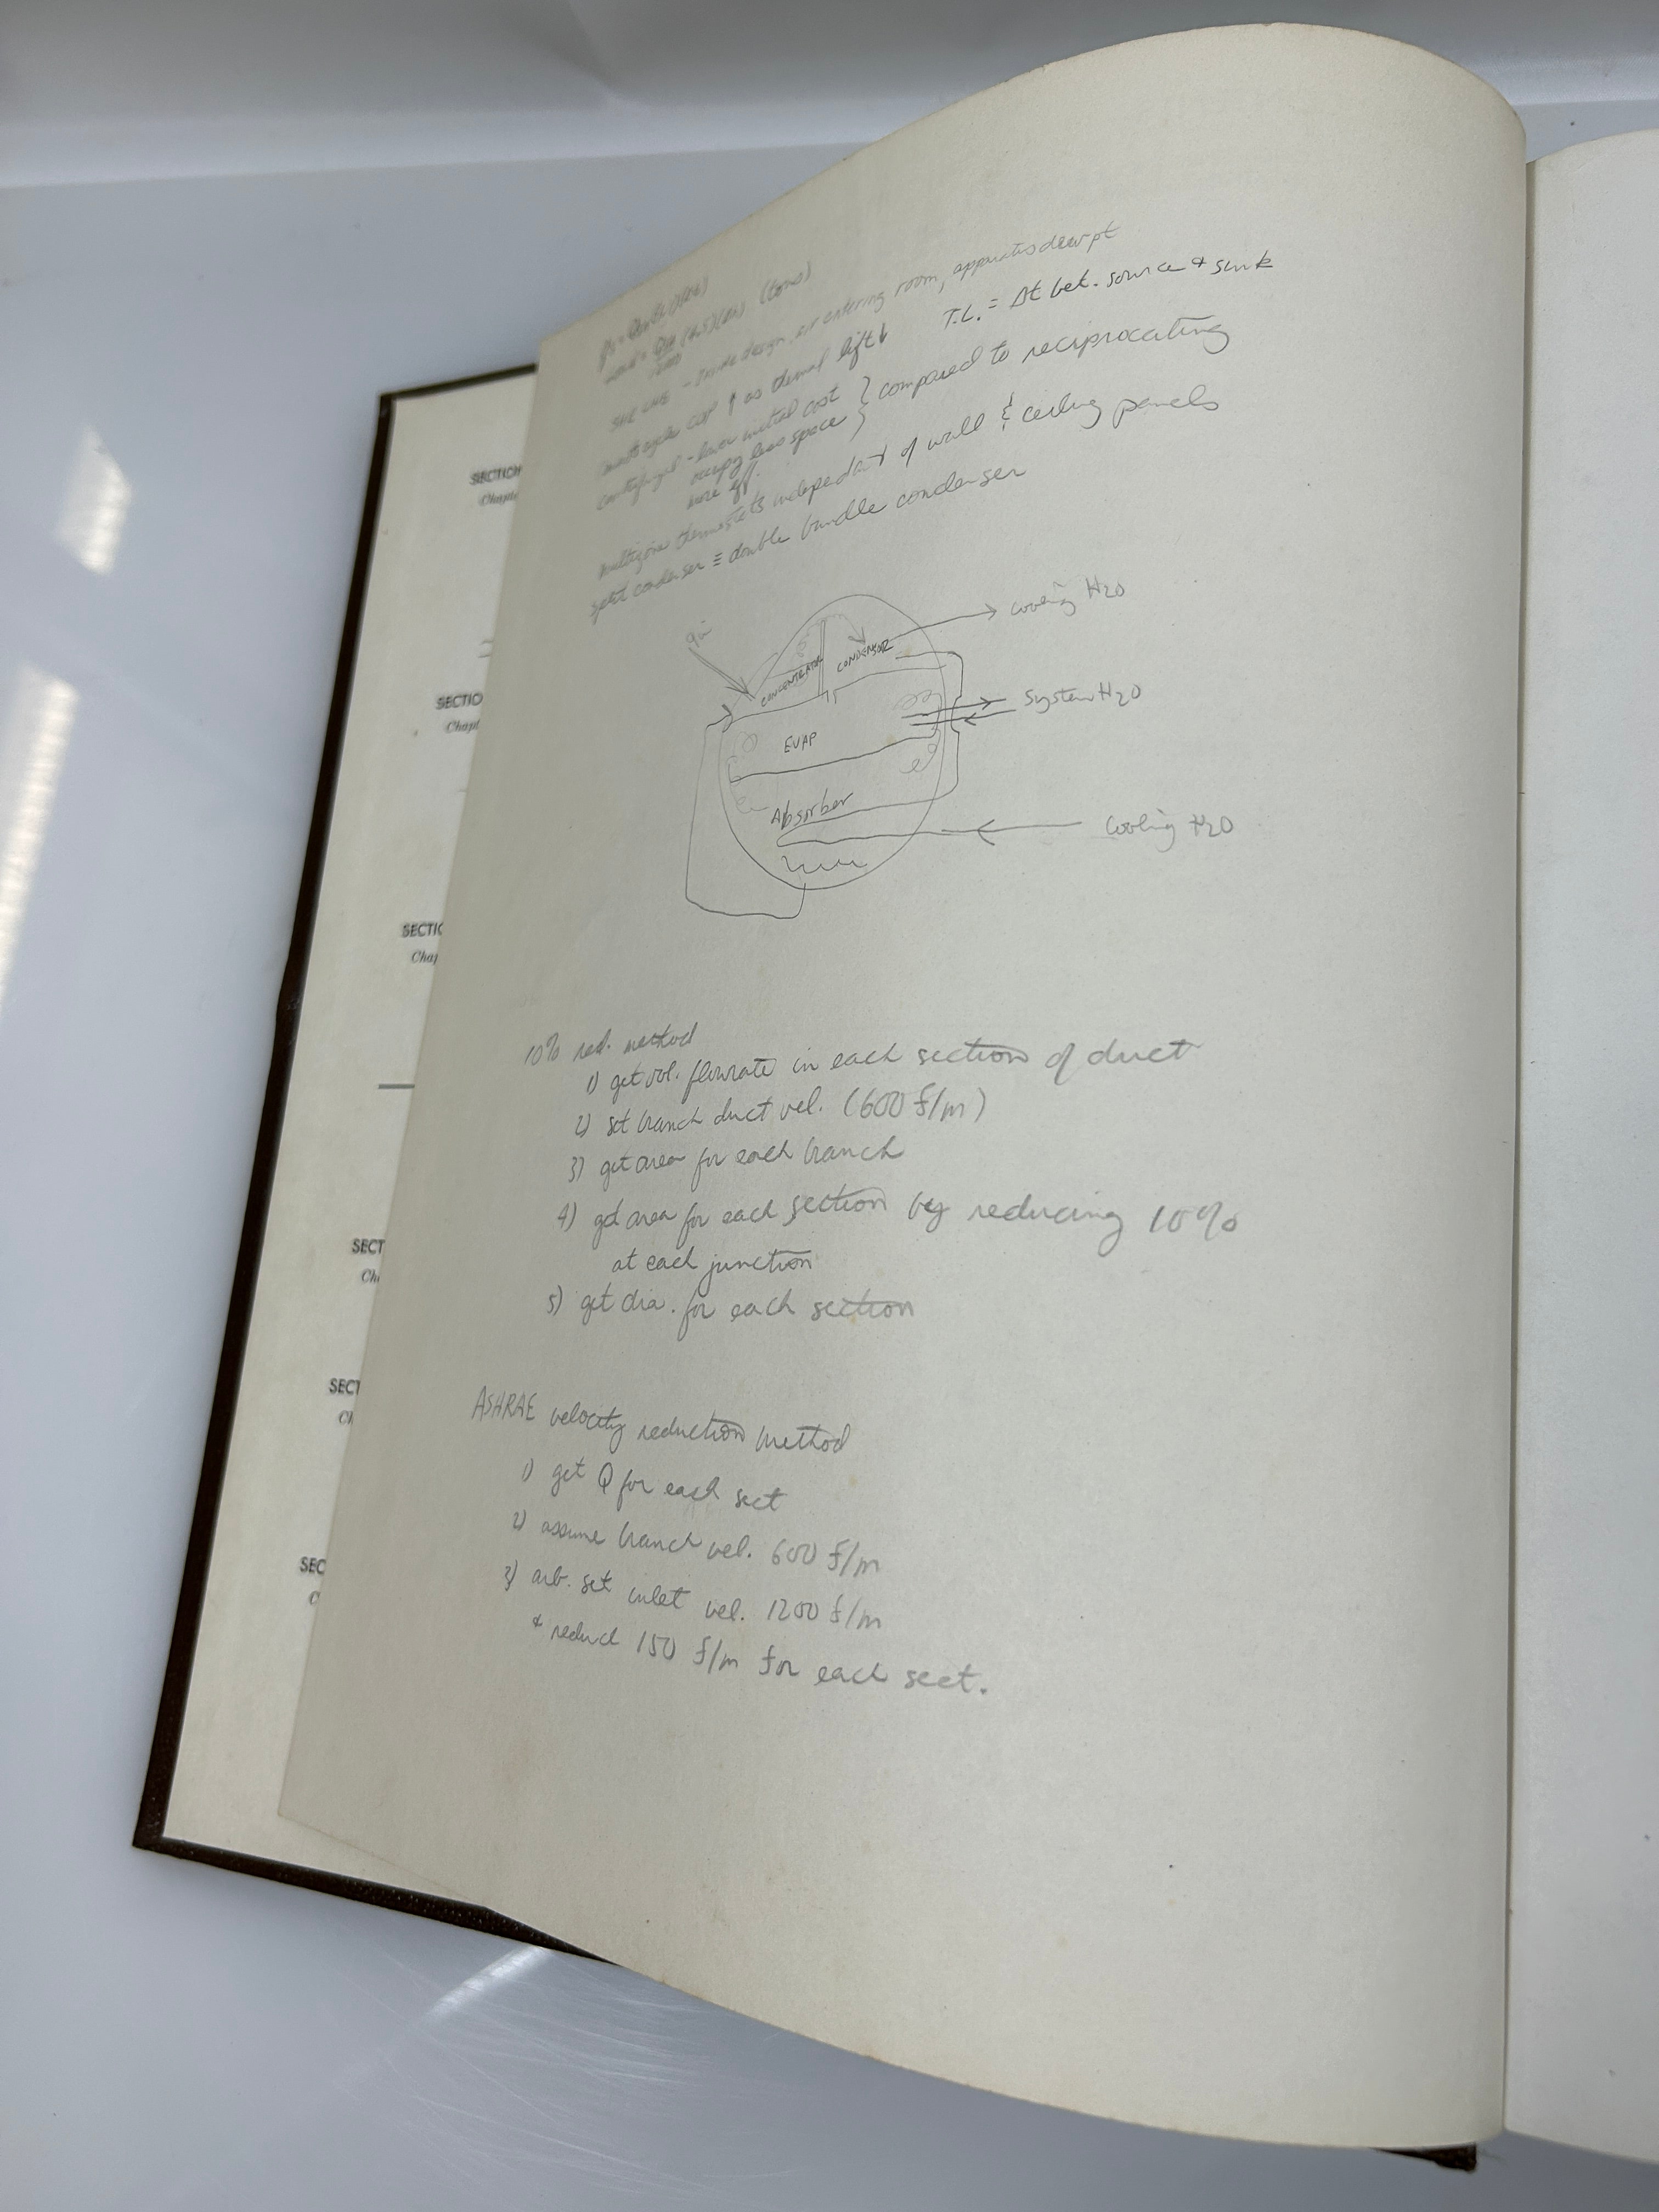 (tons)
SHF line - inside design, air entering room, apparatus dew pt
cop ↑ as thermal lift ↓ T.L. = Δt bet. source + sink
centrifugal - lower initial cost } compared to reciprocating
occupy less space
more eff.
multizone thermostats independent of wall & ceiling panels
split condenser ≡ double bundle condenser
cooling H2O
CONCENTRATOR
CONDENSOR
System H2O
EVAP
Absorber
Cooling H2O
10% red. method
1) get vol. flowrate in each section of duct
2) set branch duct vel. (600 f/m)
3) get area for each branch
4) get area for each section by reducing 10%
at each junction
5) get dia. for each section
ASHRAE velocity reduction method
1) get Q for each sect
2) assume branch vel. 600 f/m
3) arb. set inlet vel. 1200 f/m
+ reduce 150 f/m for each sect.
SECTION
SECTIO
Chapt
SECTIC
Chap
SECT
Ch
SECT
Ch
SEC
C